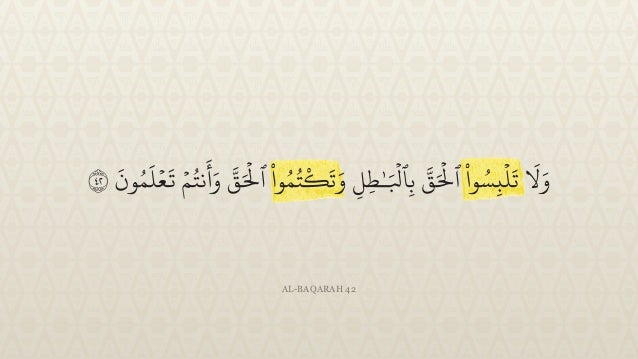 وَلَا تَلْبِسُوا۟ ٱلْحَقَّ بِٱلْبَـٰطِلِ وَتَكْتُمُوا۟ ٱلْحَقَّ وَأَنتُمْ تَعْلَمُونَ ٤٢
AL-BAQARAH 42